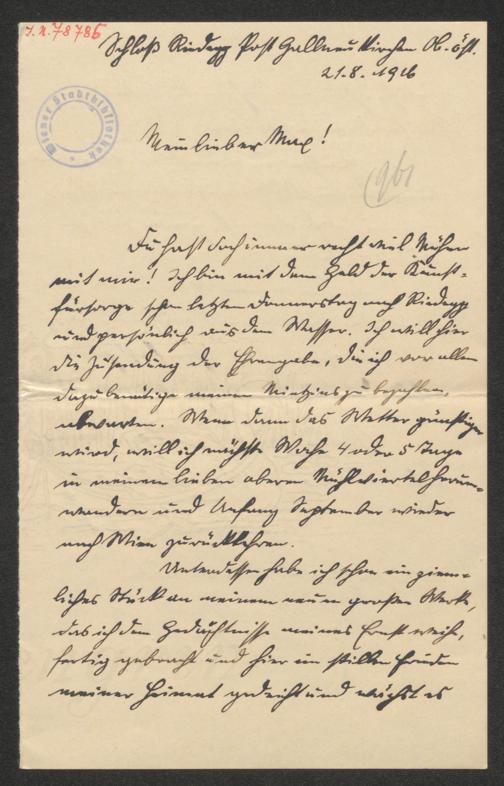 J.N. 78786
Schloß Riedegg Post Gallneukirchen Ob.-öst.
21.8.1916
Wiener Stadtbibliothek
Mein lieber Max!
961
Du hast doch immer recht viel Mühen
mit mir! Ich bin mit dem Geld der Künst-
fürsorge schon letzten Donnerstag nach Riedegg
und persönlich aus dem Wasser. Ich will hier
die Zusendung der Ehrengabe, die ich vor allem
dazu benötige meinen Mietzins zu bezahlen,
abwarten. Wenn dann das Wetter günstiger
wird, will ich nächste Woche 4 oder 5 Tage
in meinem lieben oberen Mühlviertel herum-
wandern und Anfang September wieder
nach Wien zurückkehren.
Unterdessen habe ich schon ein ziem-
liches Stück an meinem neuen großen Werke,
das ich dem Gedächtnisse meines Ernst weihe,
fertig gebracht und hier im stillen Frieden
meiner Heimat gedeiht und wächst es